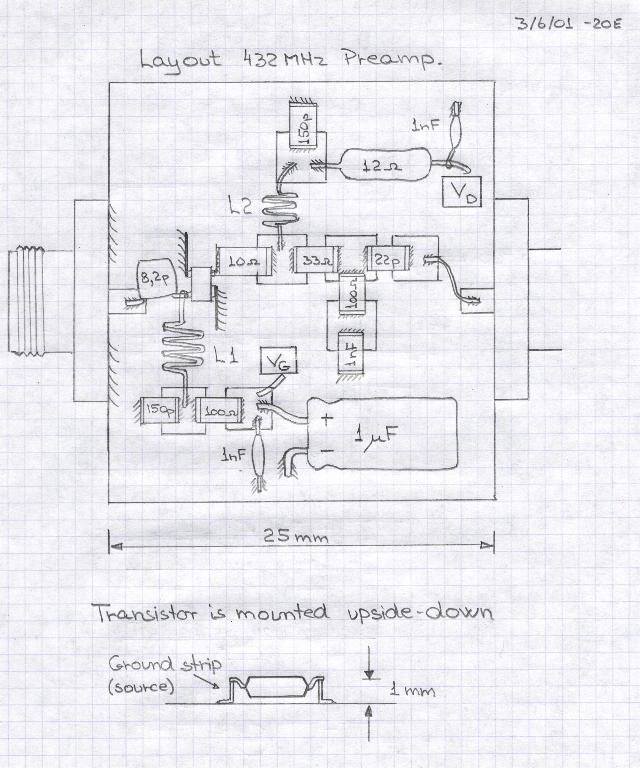 3/6/01 -20E
Layout 432 MHz Preamp.
1nF
150p
12Ω
VD
L2
8,2p
10Ω
33Ω
22p
100Ω
L1
VG
1nF
150p
100Ω
+
1µF
1nF
−
25 mm
Transistor is mounted upside-down
Ground strip
(source)
1 mm